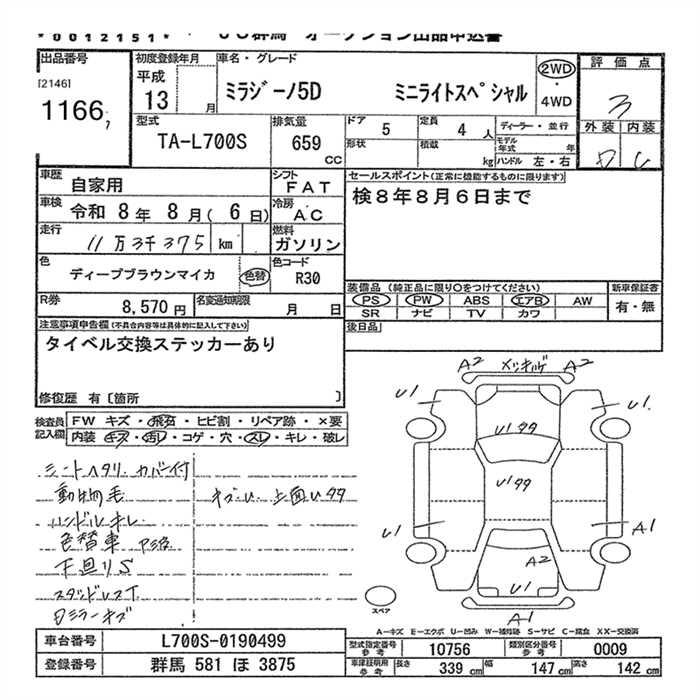 *0012151*
JU群馬 オークション出品申込書
出品番号
[2146]
1166
初度登録年月
平成
13 月
車名・グレード
ミラジーノ5D ミニライトスペシャル
2WD
・
4WD
評価点
3
外装 内装
型式
TA-L700S
排気量
659
CC
ドア 5
定員 4 人
ディーラー・並行
形状
積載 kg
モデル年式 年
ハンドル 左・右
車歴
自家用
シフト
FAT
セールスポイント(正常に機能するものに限ります)
検8年8月6日まで
車検
令和 8年 8月( 6日)
冷房
AC
走行
11万3千375 km
燃料
ガソリン
色
ディープブラウンマイカ
色替
色コード
R30
装備品(純正品に限り○をつけてください)
新車保証書
PS PW ABS エアB AW
SR ナビ TV カワ
有・無
R券
8,570円
名変通知期限
月 日
後日品
注意事項申告欄(不具合内容等は具体的に記入して下さい)
タイベル交換ステッカーあり
修復歴 有〔箇所 〕
検査員記入欄
FW キズ・飛石・ヒビ割・リペア跡・×要
内装 キズ・汚レ・コゲ・穴・スレ・キレ・破レ
シートヘタリ カバー付
動物毛
ハンドルキレ
色替車
下廻りS
スタッドレスT
ミラーキズ
上面U
A2 A2
U1 U1
U1
U1
U1 A1
A2
U1
A1
スペア
A-キズ E-エクボ U-凹み W-補修跡 S-サビ C-腐食 XX-交換済
車台番号
L700S-0190499
登録番号
群馬 581 ほ 3875
型式指定番号
参考
10756
類別区分番号
参考
0009
車庫証明用
参考
長さ 339 cm
幅 147 cm
高さ 142 cm